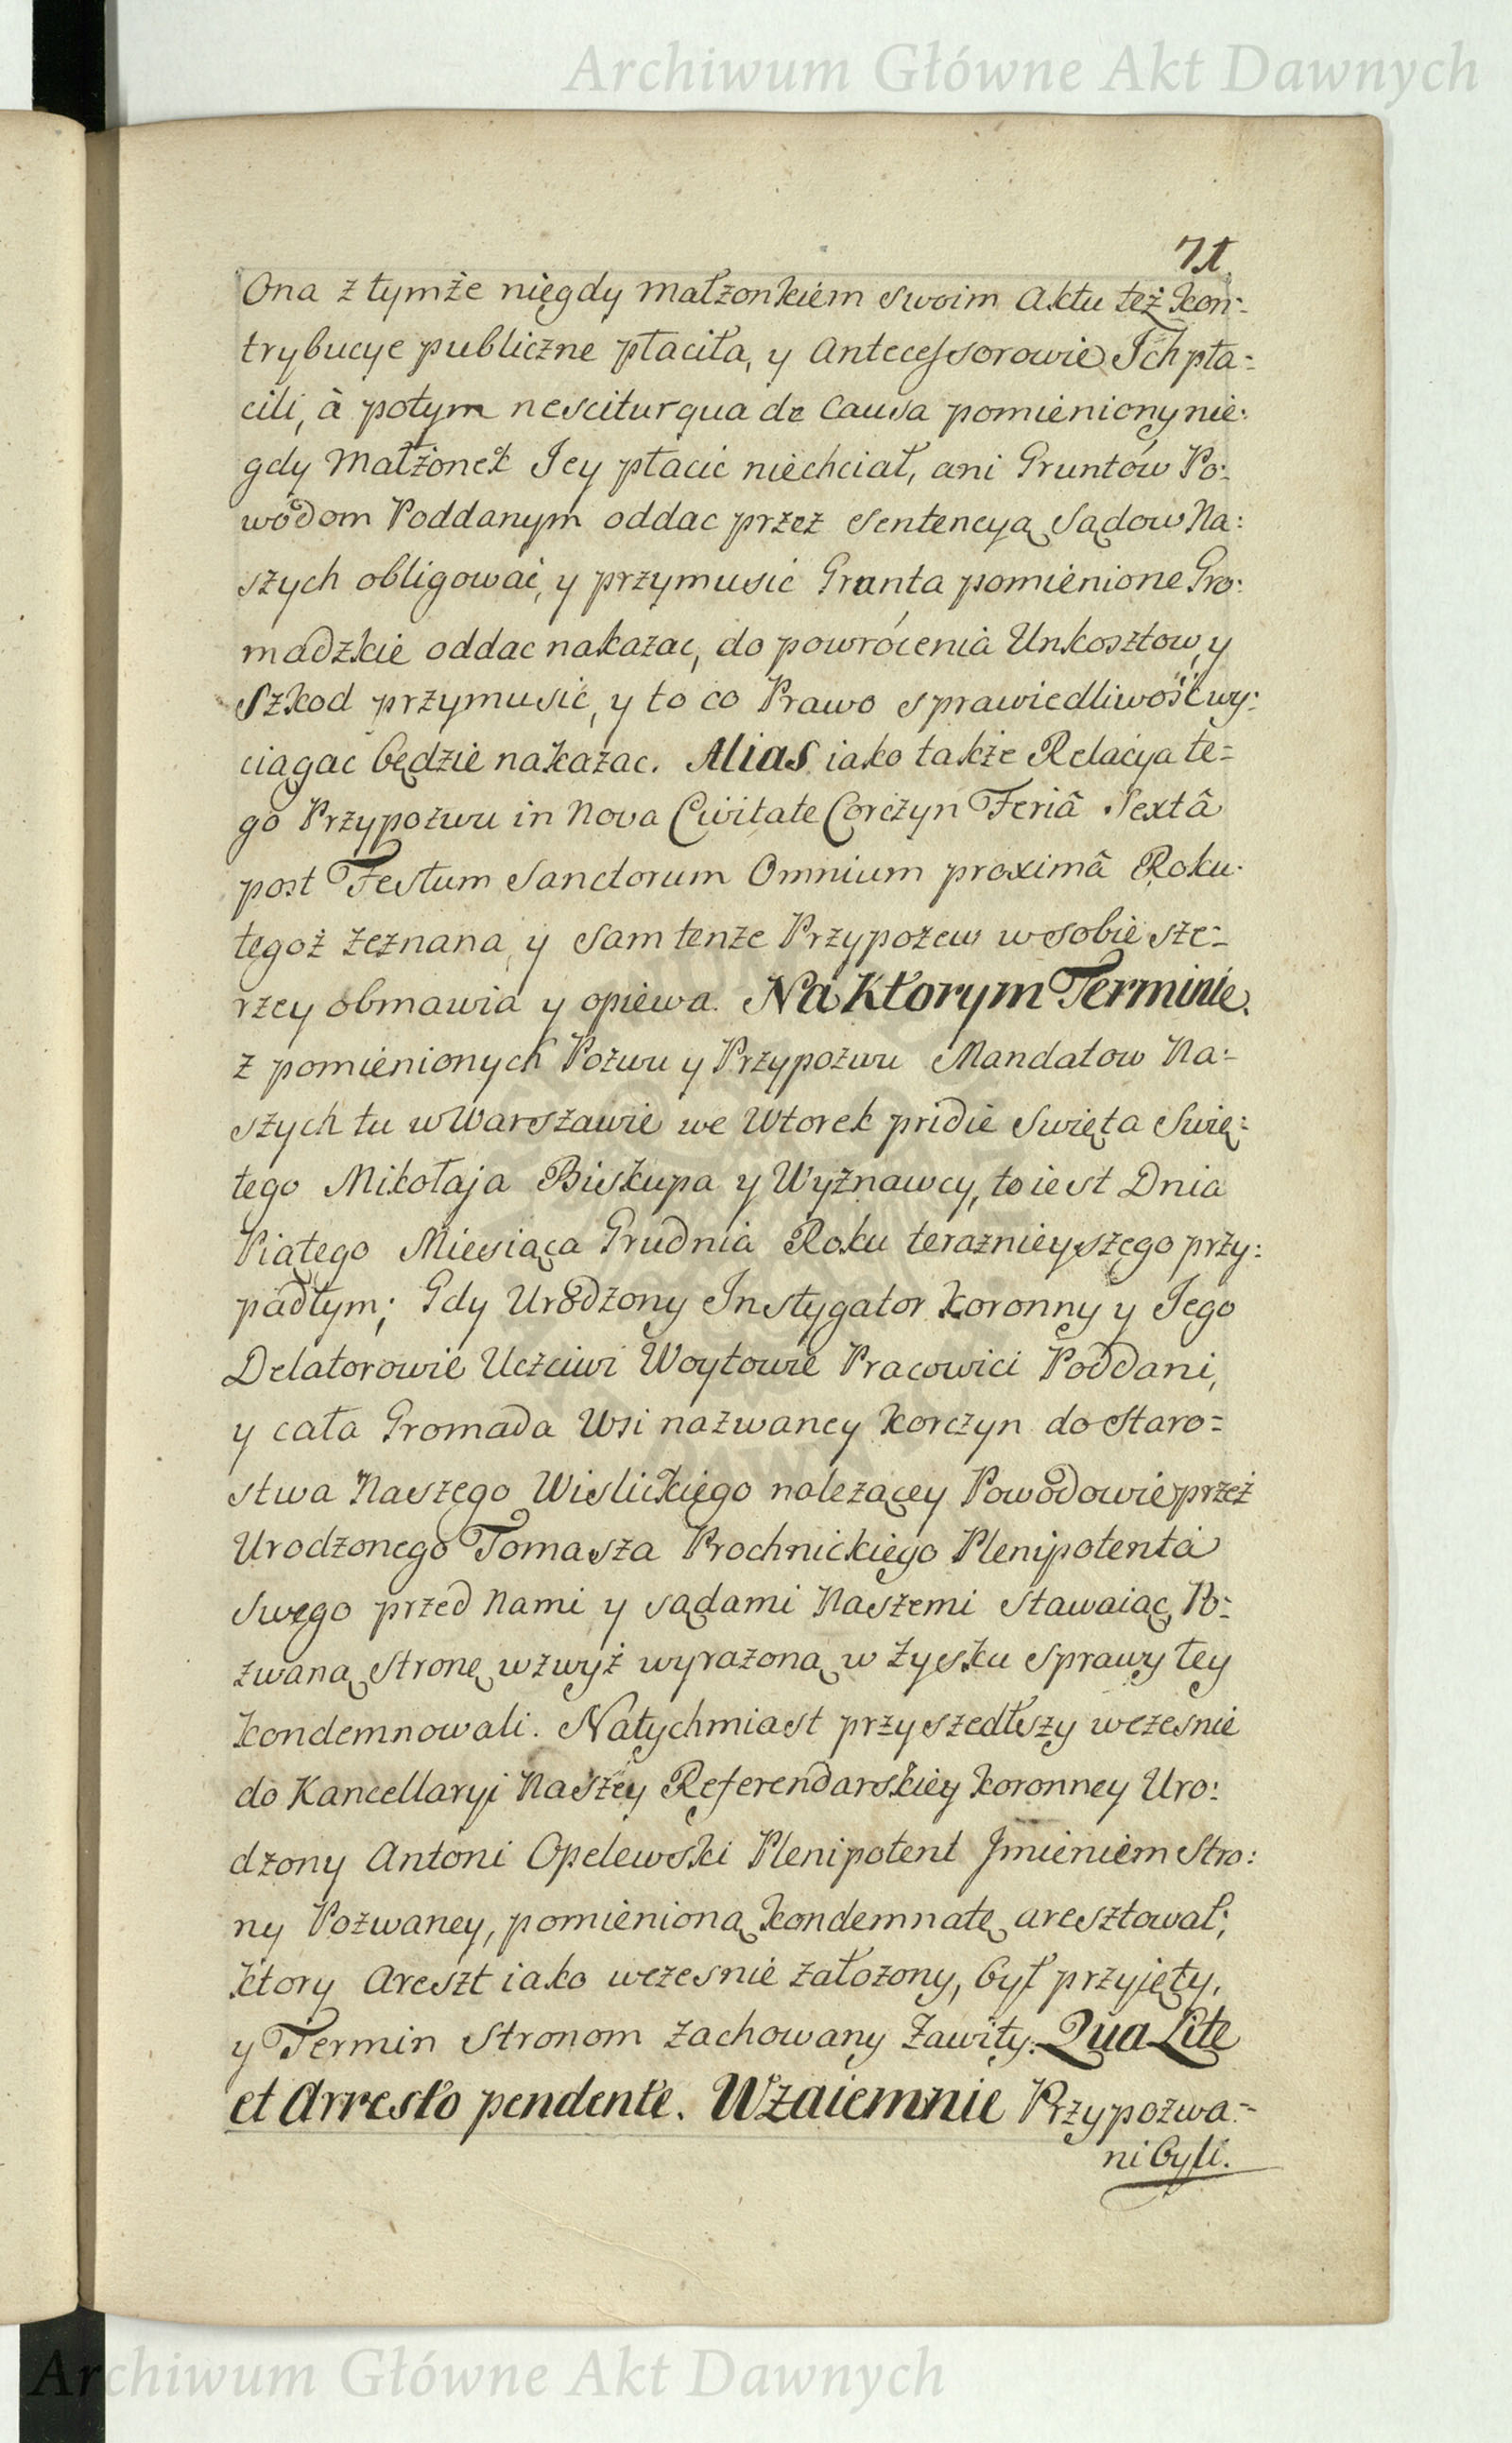 Archiwum Główne Akt Dawnych
71.
Ona z tymże niegdy małżonkiem swoim Aktu też kon:
trybucye publiczne płaciła, y Antecessorowie Ich pła=
cili, à potym nescitur qua de causa pomieniony nie:
gdy Małżonek Jey płacic niechciał, ani Gruntów Po:
wodom Poddanym oddac przez Sentencyą Sądow Na:
szych obligować, y przymusić Grunta pomienione Gro:
madzkie oddac nakazac, do powrócenia Unkosztow, y
Szkod przymusić, y to co Prawo sprawiedliwość wy:
ciągac będzie nakazac. Alias iako także Relacya te=
go Przypozwu in Nova Civitate Corczyn Feriâ Sextâ
post Festum Sanctorum Omnium proximâ Roku
tegoż zeznana, y sam tenze Przypozew w sobie sze=
rzey obmawia y opiewa. Na Ktorym Terminie.
z pomienionych Pozwu y Przypozwu Mandatow Na:
szych tu w Warszawie we Wtorek pridie Swięta Swię:
tego Mikołaja Biskupa y Wyznawcy, to iest Dnia
Piątego Miesiąca Grudnia Roku teraznieyszego przy:
padłym; Gdy Urodzony Instygator Koronny y Jego
Delatorowie Uczciwi Woytowie Pracowici Poddani,
y cała Gromada Wsi nazwaney Korczyn do Staro=
stwa Naszego Wislickiego nalezącey Powodowie przez
Urodzonego Tomasza Prochnickiego Plenipotenta
Swego przed Nami y sądami Naszemi stawaiąc, Po:
zwaną Stronę wzwyż wyrażoną w zysku Sprawy tey
kondemnowali. Natychmiast przyszedłszy wczesnie
do Kancellaryi Naszey Referendarskiey Koronney Uro:
dzony Antoni Opelewski Plenipotent Jmieniem Stro:
ny Pozwaney, pomienioną kondemnatę aresztował;
ktory Areszt iako wczesnie założony, był przyjęty,
y Termin Stronom zachowany Zawity. Qua Lite
et Arresto pendente. Wzaiemnie Przypozwa=
ni byli.
Archiwum Główne Akt Dawnych